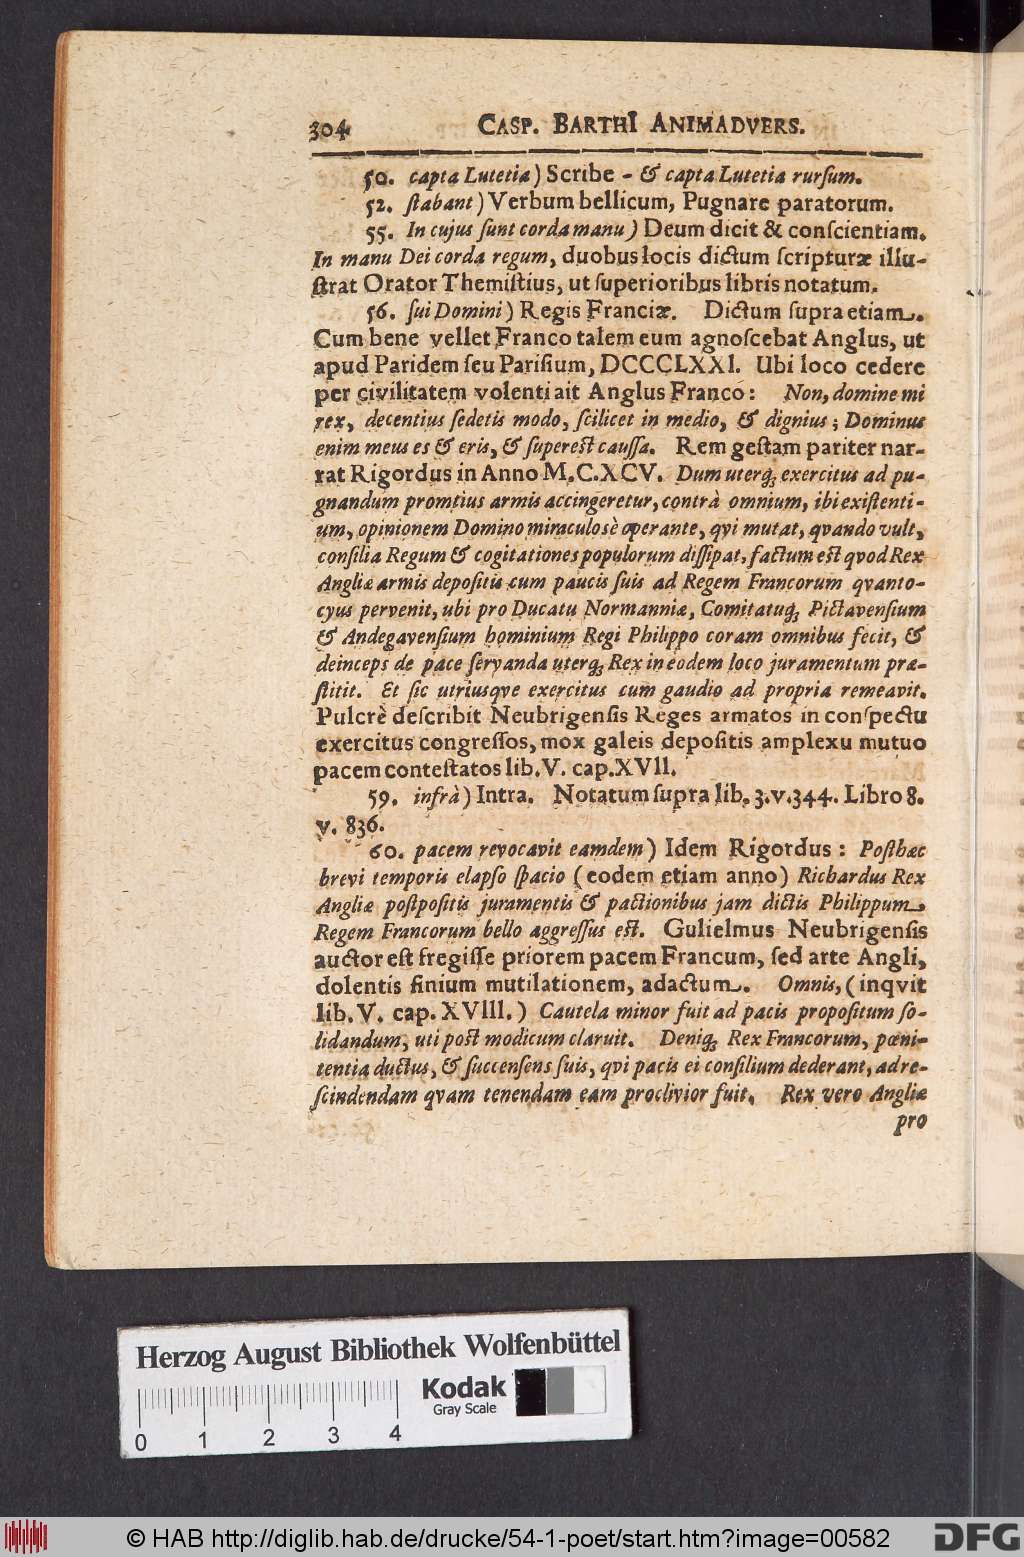 304 CASP. BARTHI ANIMADVERS.
50. capta Lutetia) Scribe - & capta Lutetia rurſum.
52. ſtabant) Verbum bellicum, Pugnare paratorum.
55. In cujus ſunt corda manu) Deum dicit & conſcientiam.
In manu Dei corda regum, duobus locis dictum ſcripturæ illu-
ſtrat Orator Themiſtius, ut ſuperioribus libris notatum.
56. ſui Domini) Regis Franciæ. Dictum ſupra etiam.
Cum bene vellet Franco talem eum agnoſcebat Anglus, ut
apud Paridem ſeu Pariſium, DCCCLXXI. Ubi loco cedere
per civilitatem volenti ait Anglus Franco: Non, domine mi
rex, decentius ſedetis modo, ſcilicet in medio, & dignius; Dominus
enim meus es & eris, & ſupereſt cauſſa. Rem geſtam pariter nar-
rat Rigordus in Anno M.C.XCV. Dum uterq; exercitus ad pu-
gnandum promtius armis accingeretur, contrà omnium, ibi exiſtenti-
um, opinionem Domino miraculosè operante, qvi mutat, qvando vult,
conſilia Regum & cogitationes populorum diſſipat, factum eſt qvod Rex
Angliæ armis depoſitis cum paucis ſuis ad Regem Francorum qvanto-
cyus pervenit, ubi pro Ducatu Normanniæ, Comitatuq; Pictavenſium
& Andegavenſium hominium Regi Philippo coram omnibus fecit, &
deinceps de pace ſervanda uterq; Rex in eodem loco juramentum præ-
ſtitit. Et ſic utriusqve exercitus cum gaudio ad propria remeavit.
Pulcrè deſcribit Neubrigenſis Reges armatos in conſpectu
exercitus congreſſos, mox galeis depoſitis amplexu mutuo
pacem conteſtatos lib. V. cap. XVII.
59. infrà) Intra. Notatum ſupra lib. 3. v. 344. Libro 8.
v. 836.
60. pacem revocavit eamdem) Idem Rigordus: Poſthæc
brevi temporis elapſo ſpacio (eodem etiam anno) Richardus Rex
Angliæ poſtpoſitis juramentis & pactionibus jam dictis Philippum,
Regem Francorum bello aggreſſus eſt. Gulielmus Neubrigenſis
auctor eſt fregiſſe priorem pacem Francum, ſed arte Angli,
dolentis finium mutilationem, adactum. Omnis, (inqvit
lib. V. cap. XVIII.) Cautela minor fuit ad pacis propoſitum ſo-
lidandum, uti poſt modicum claruit. Deniq; Rex Francorum, pœni-
tentia ductus, & ſuccenſens ſuis, qvi pacis ei conſilium dederant, ad re-
ſcindendam qvam tenendam eam proclivior fuit. Rex vero Angliæ
pro
Herzog August Bibliothek Wolfenbüttel
Kodak
Gray Scale
0 1 2 3 4
© HAB http://diglib.hab.de/drucke/54-1-poet/start.htm?image=00582
DFG